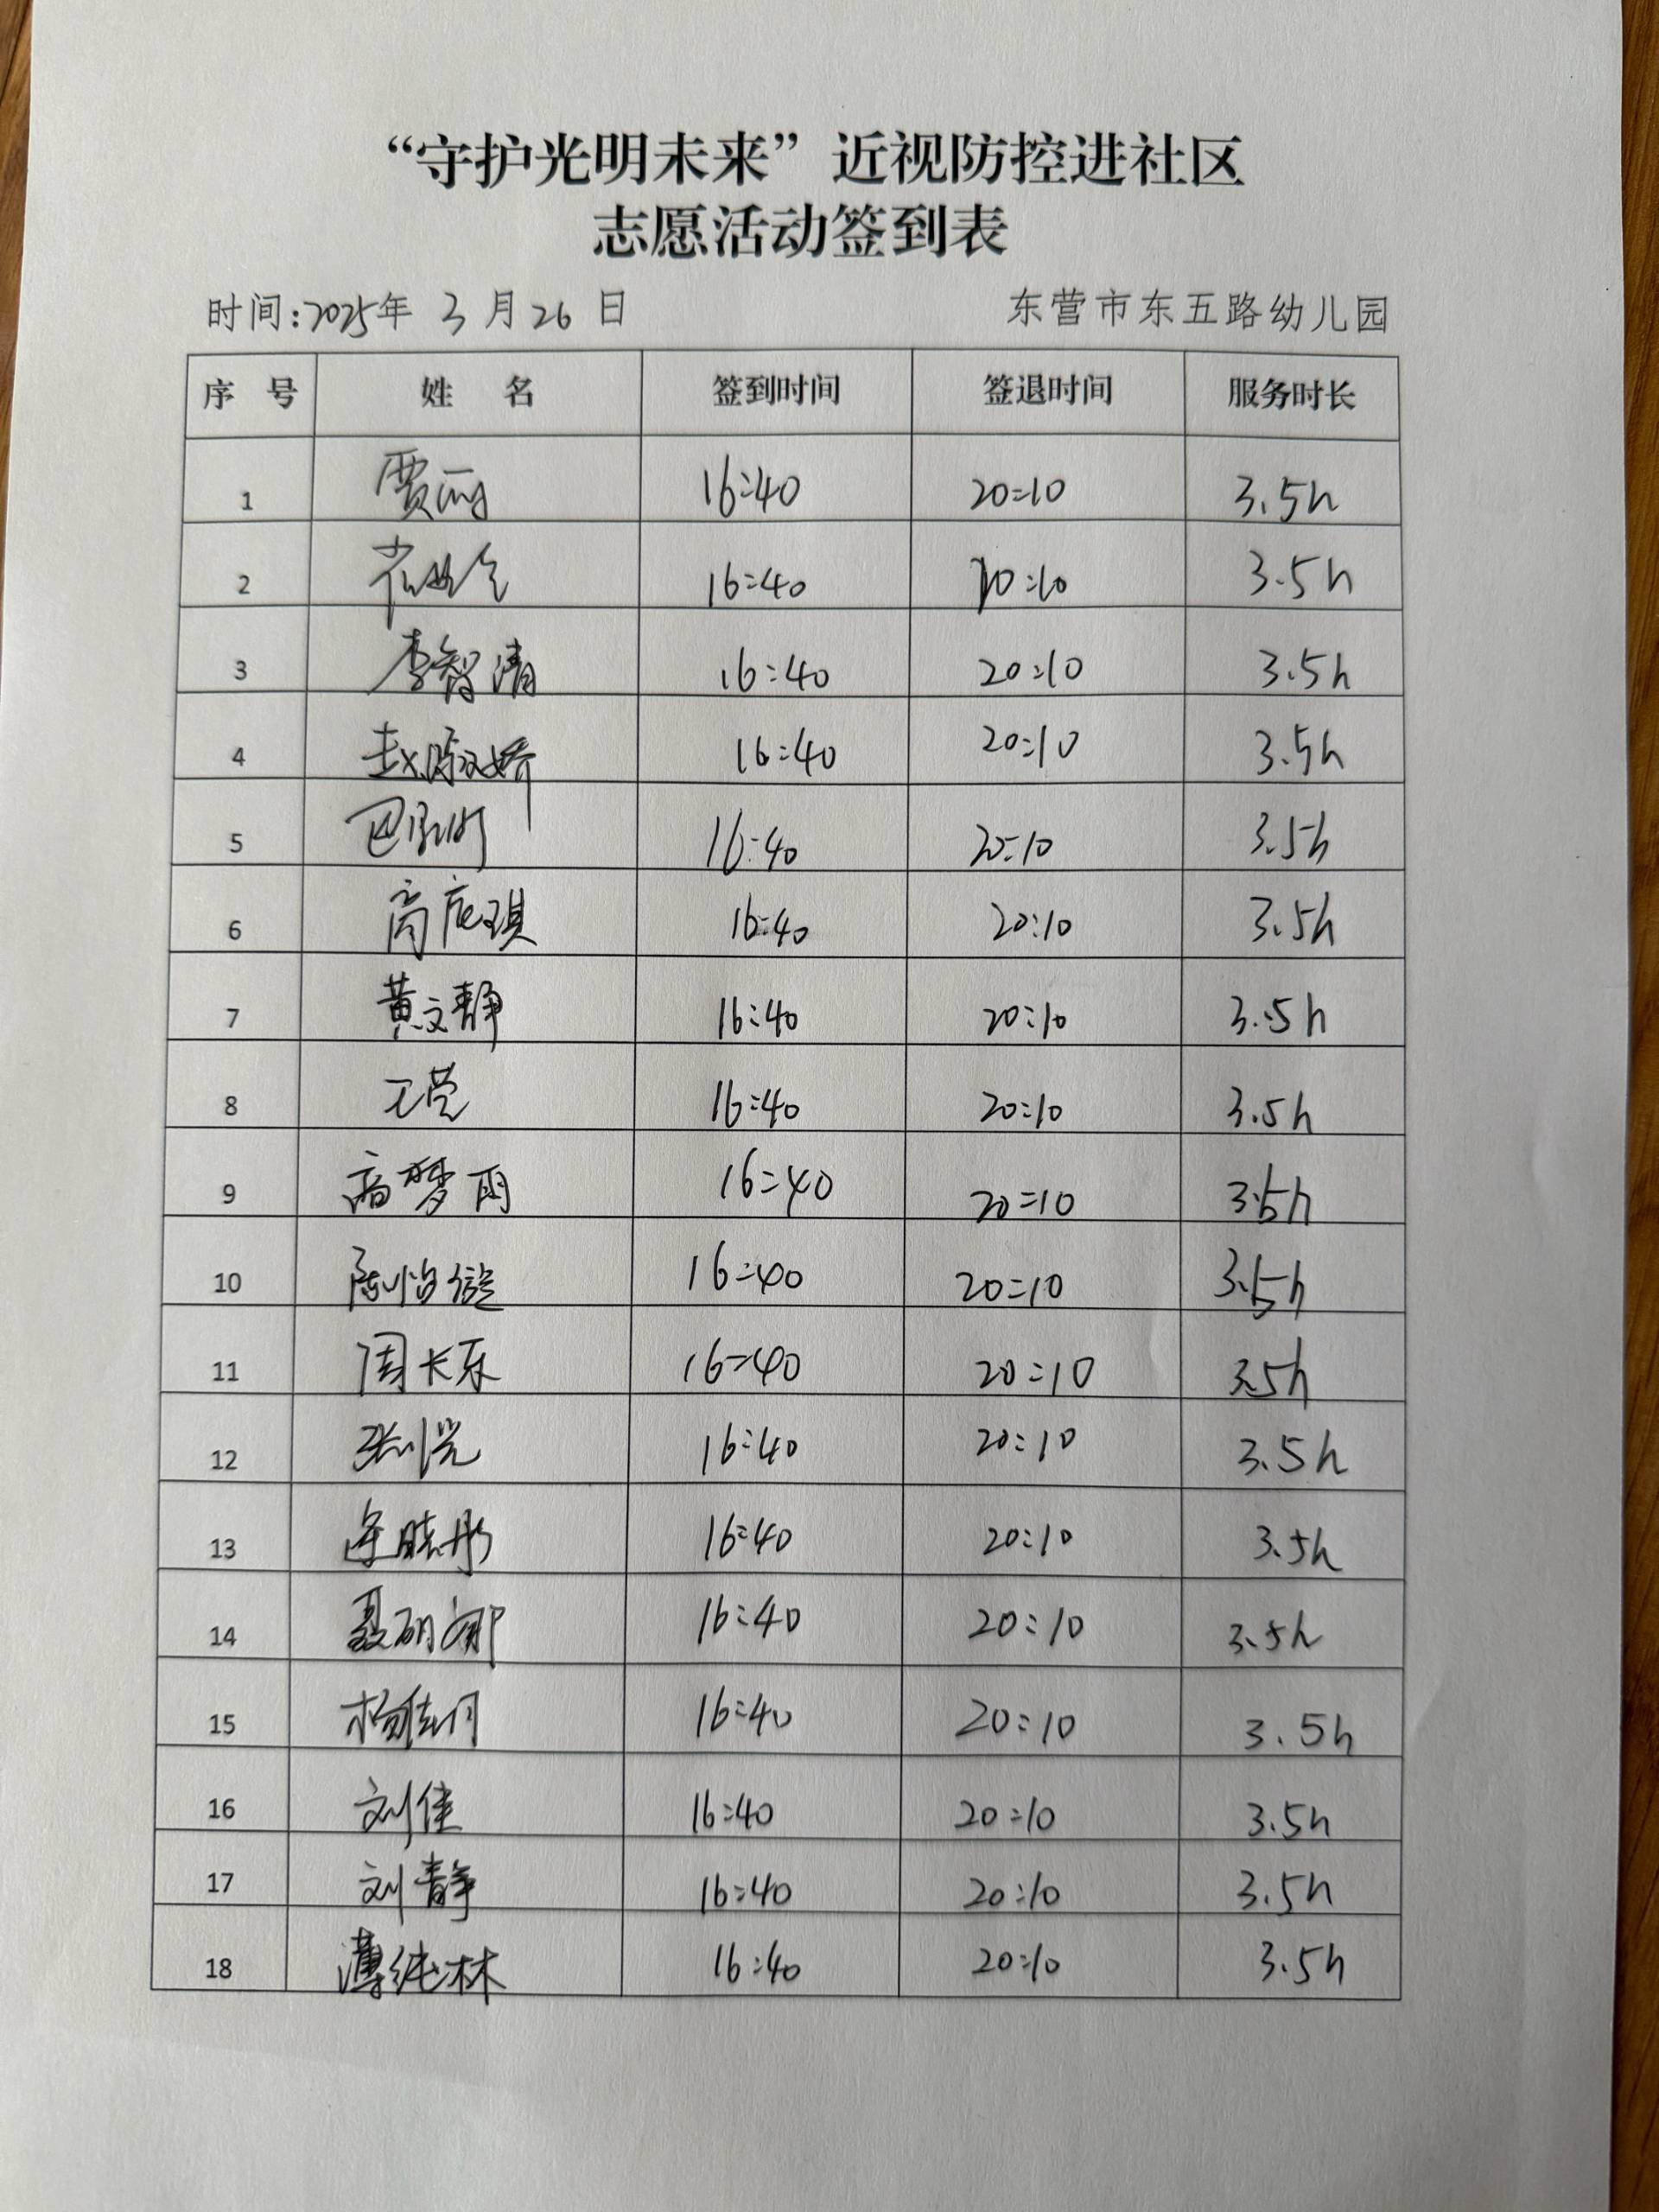 “守护光明未来”近视防控进社区
志愿活动签到表
时间:2025年 3 月 26 日 东营市东五路幼儿园
序 号 姓 名 签到时间 签退时间 服务时长
1 贾丽 16:40 20:10 3.5h
2 16:40 20:10 3.5h
3 李智清 16:40 20:10 3.5h
4 赵 娇 16:40 20:10 3.5h
5 巴 16:40 20:10 3.5h
6 高 琪 16:40 20:10 3.5h
7 黄文静 16:40 20:10 3.5h
8 16:40 20:10 3.5h
9 高梦雨 16:40 20:10 3.5h
10 陈怡 16:40 20:10 3.5h
11 周长乐 16:40 20:10 3.5h
12 张 16:40 20:10 3.5h
13 晓彤 16:40 20:10 3.5h
14 聂 娜 16:40 20:10 3.5h
15 杨佳 16:40 20:10 3.5h
16 刘佳 16:40 20:10 3.5h
17 刘静 16:40 20:10 3.5h
18 薄纯林 16:40 20:10 3.5h